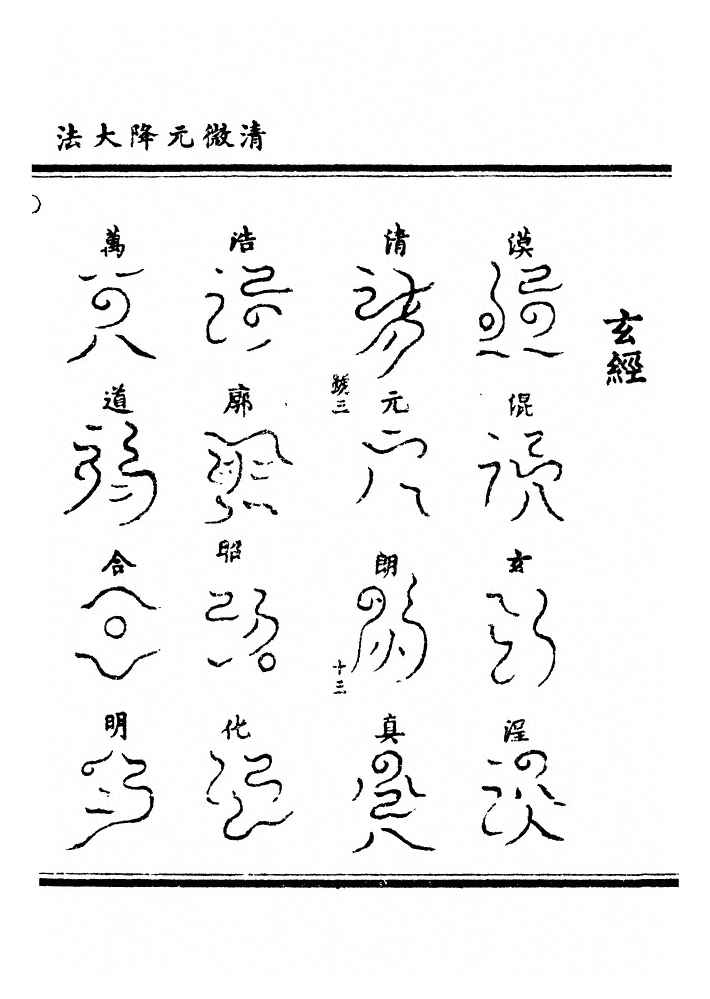 清微元降大法
玄經
漠 混 玄 浧
清 元 朗 真
號三
十三
浩 廓 昭 化
萬 道 合 明